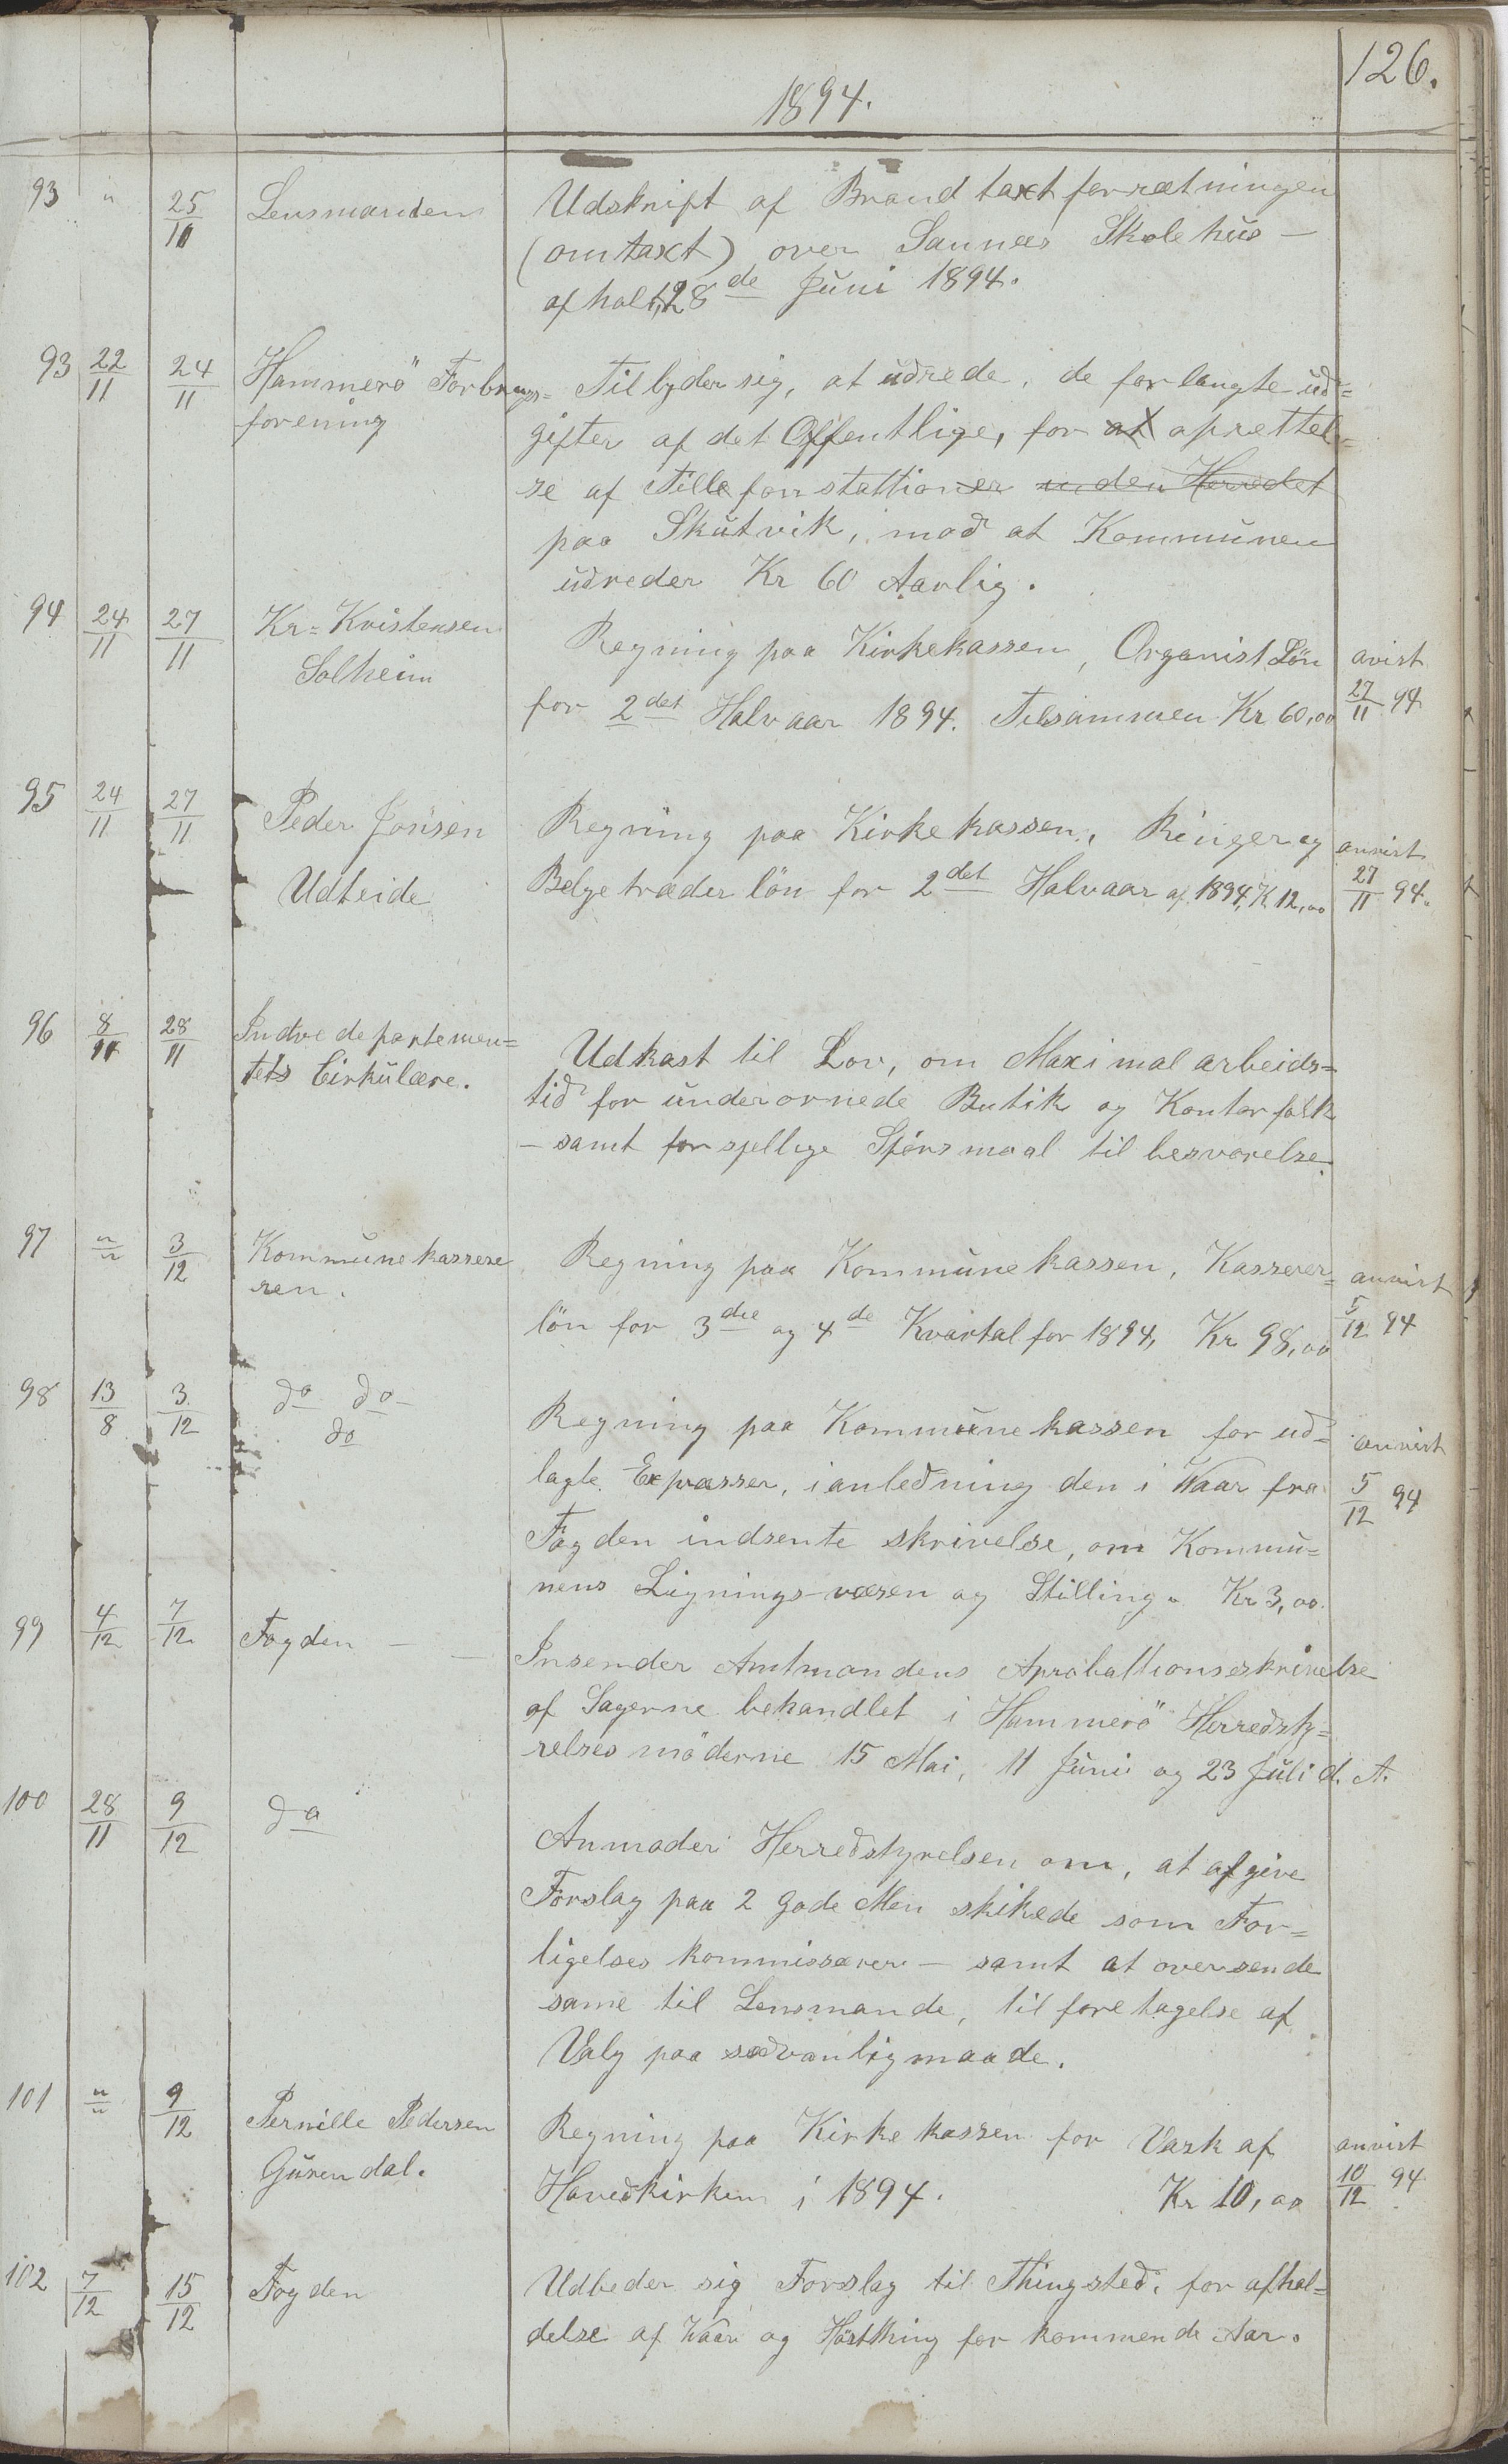 126.
1894.
93 " 25/10 Lensmanden Udskrift af Brandtaxtforretningen
(omtaxt) over Sannæs Skolehus —
afholt, 28de Juni 1894.
93 22/11 24/11 Hammerö Forbrugs= Tilbyder sig, at udrede, de forlangte ud=
forening gifter af det Offentlige, for at oprettel=
se af Tillefonstattioner inden Herredet
paa Skutvik, mod at Kommunen
udreder Kr 60 Aarlig.
94 24/11 27/11 Kr= Kristensen Regning paa Kirkekassen, Organist Lön avist
Solheim for 2det Halvaar 1894. Tilsammen Kr 60,00 27/11 94
95 24/11 27/11 Peder Jonsen Regning paa Kirkekassen, Ringer og anvist
Udteide Belgetræder lön for 2det Halvaar af 1894, K 12,00 27/11 94.
96 8/11 28/11 Indredepartemen=
tets Cirkulære. Udkast til Lov, om Maximalarbeids=
tid for underornede Butik og Kontorfolk
— samt forsjellige Spörsmaal til besvarelse.
97 " 3/12 Kommunekassere Regning paa Kommunekassen, Kasserer= anvist
ren. lön for 3die og 4de Kvartal for 1894, Kr 98,00 5/12 94
98 13/8 3/12 do do
do Regning paa Kommunekassen for ud= anvist
lagte Expresser, i anledning den i Vaar fra 5/12 94
Fogden indsente skrivelse, om Kommu=
nens Lignings-væsen og Stilling. Kr 3,00.
99 4/12 7/12 Fogden — Insender Amtmandens Aprobattionsskrivelse
af Sagerne behandlet i Hammerö Herredsty=
relses möderne 15 Mai, 11 Juni og 23 Juli d. A.
100 28/11 9/12 do Anmoder Herredstyrelsen om, at afgive
Forslag paa 2 gode Men skikede som For=
ligelses kommissærer — samt at oversende
same til Lensmande, til foretagelse af
Valg paa sædvanlig maade.
101 " 9/12 Pernille Pedersen Regning paa Kirkekassen for Vask af anvist
Gurendal. Hovedkirken i 1894. Kr 10,00 10/12 94
102 7/12 15/12 Fogden Udbeder sig Forslag til Thingsted, for afhol=
delse af Vaar og Höstthing for kommende Aar.